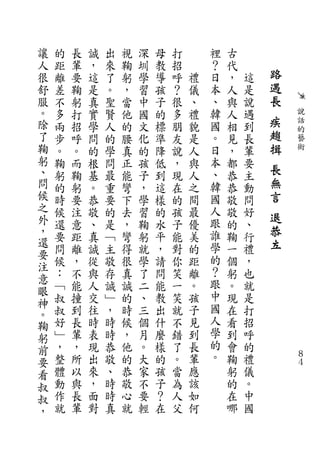 說話的藝術
路遇長　疾趨揖　長無言　退恭立
這是說遇到長輩要主動問好、行禮，也就是打招呼的禮儀。中國
古代，人與人相見，都恭恭敬敬的鞠一個躬。現在看到會鞠躬的在哪
裡？日本、韓國。日本、韓國人跟誰學的？跟中國人學的。
禮儀、禮貌是人與人之間最優美的距離。孩子見到長輩應該如何
打招呼？很多朋友說，現在的孩子能對你笑一笑就不錯了。當為人父
母教導孩子的標準降低到這樣的水平，請問能教出什麼樣的孩子？在
深圳學習中國文化的孩子，學習鞠躬就學了二、三個月。大家不要輕
視鞠躬，當他的腰真正能彎下去，彎得很真誠的時候，他的恭敬心就
出來了。聖賢人的學問最重要的是﹁主敬存誠﹂，時時恭敬、時時真
誠，這是真實學問的根基。恭敬、真誠從與人交往時表現出來，面對
長輩要鞠躬打招呼。而鞠躬要注意距離，不能撞到長輩，所以與長輩
的距離差不多兩步。鞠躬的時候還要問候：﹁叔叔好﹂，整體動作就
讓人很舒服。除了鞠躬、問候之外，還要注意眼神。鞠躬前要看叔叔，
84